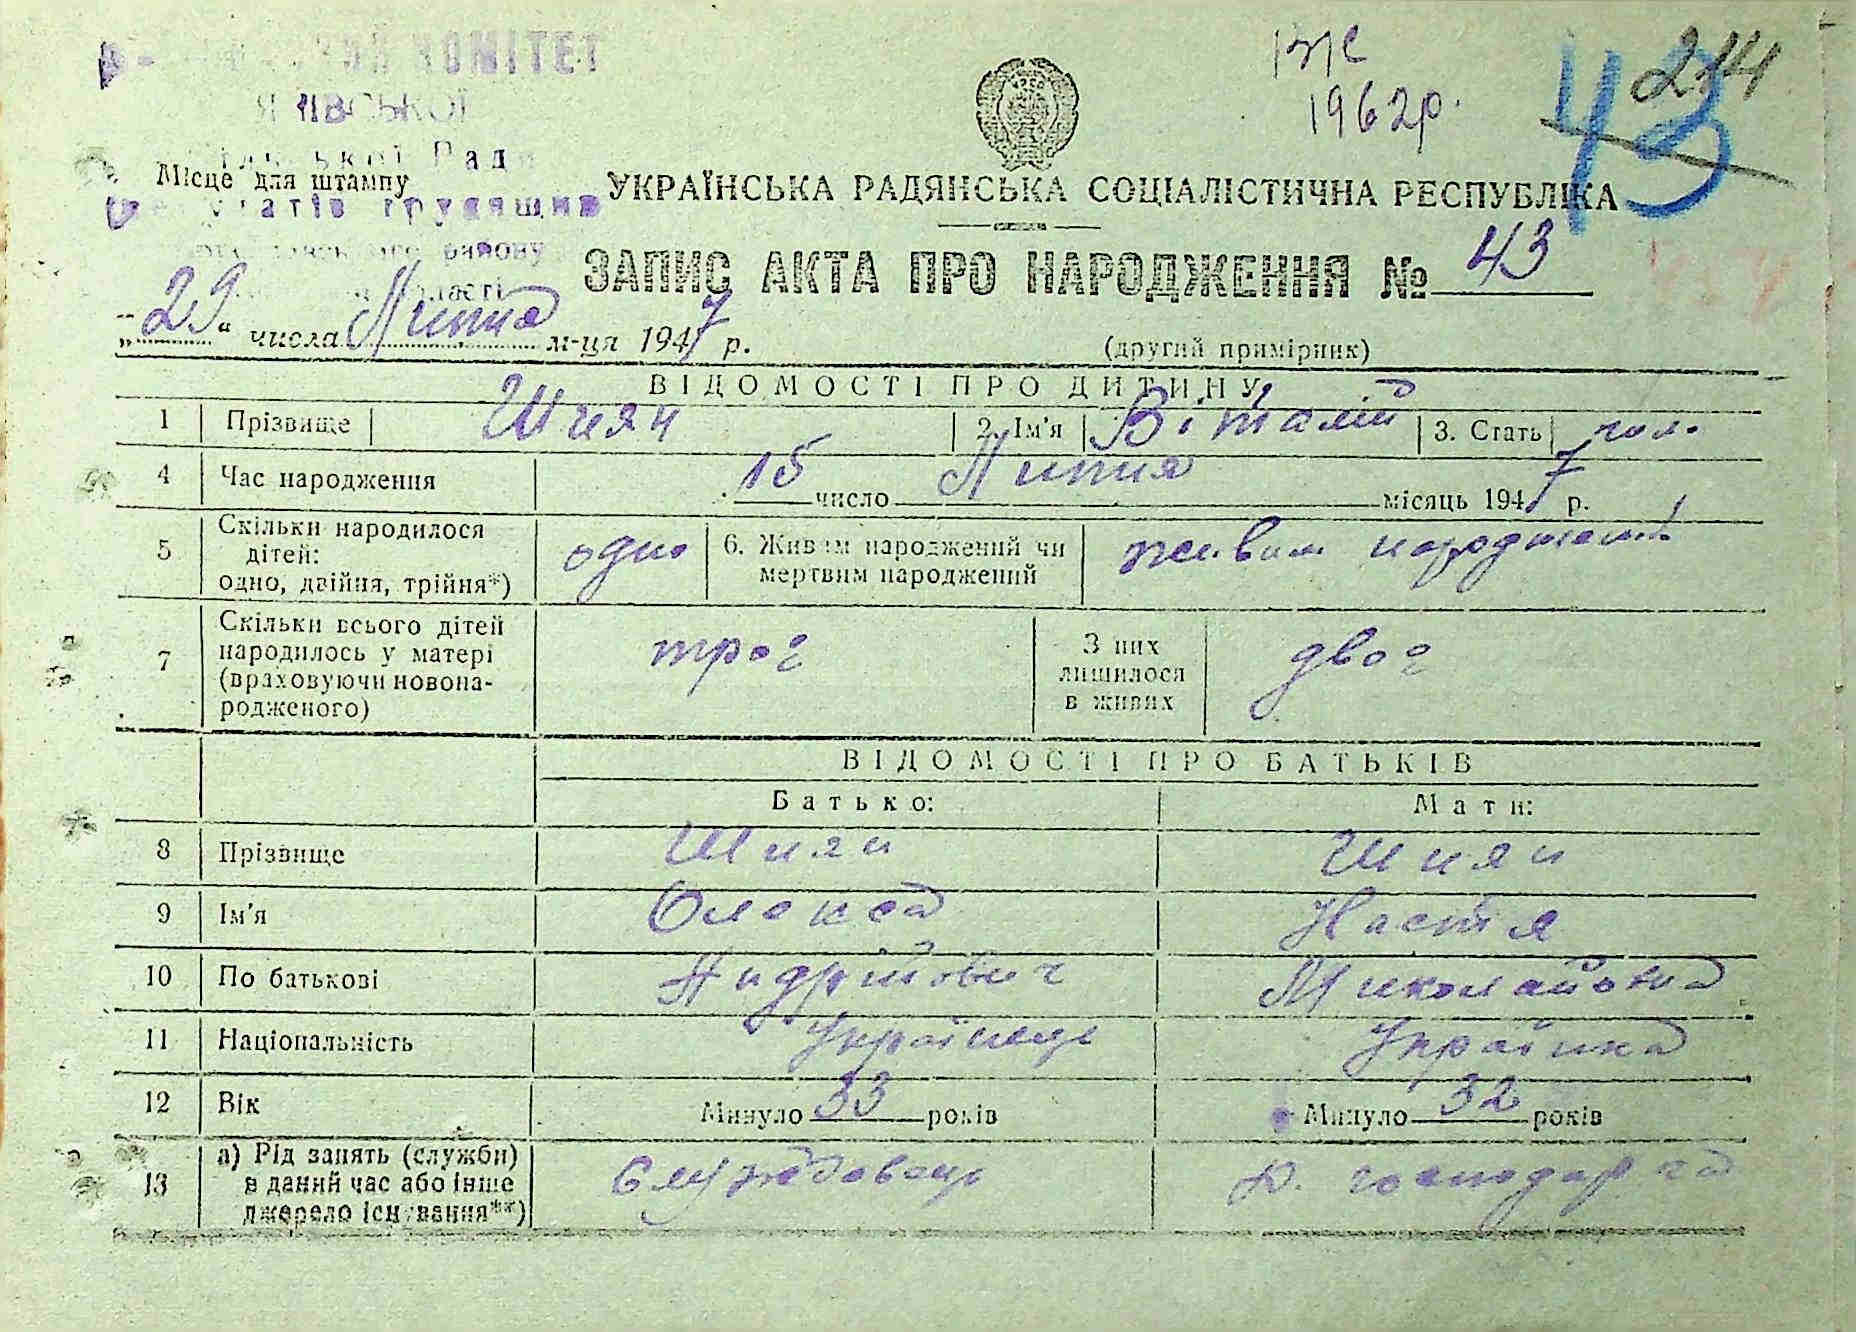 КОМІТЕТ
214
1962р.
43
Ради
Місце для штампу
УКРАЇНСЬКА РАДЯНСЬКА СОЦІАЛІСТИЧНА РЕСПУБЛІКА
трудящих
району
області
ЗАПИС АКТА ПРО НАРОДЖЕННЯ № 43
„29“ числа Липня м-ця 1947 р.
(другий примірник)
ВІДОМОСТІ ПРО ДИТИНУ
1 Прізвище Шиян 2. Ім'я Віталій 3. Стать чол.
4 Час народження 15 число Липня місяць 1947 р.
5 Скільки народилося дітей: одно, двійня, трійня*) одно 6. Живим народжений чи мертвим народжений живим народжений
7 Скільки всього дітей народилось у матері (враховуючи новонародженого) троє З них лишилося в живих двоє
ВІДОМОСТІ ПРО БАТЬКІВ
Батько: Мати:
8 Прізвище Шиян Шиян
9 Ім'я Олекса Настя
10 По батькові Андрійович Миколаївна
11 Національність Українець Українка
12 Вік Минуло 33 років Минуло 32 років
13 а) Рід занять (служби) в даний час або інше джерело існування**) Службовець д. господарка